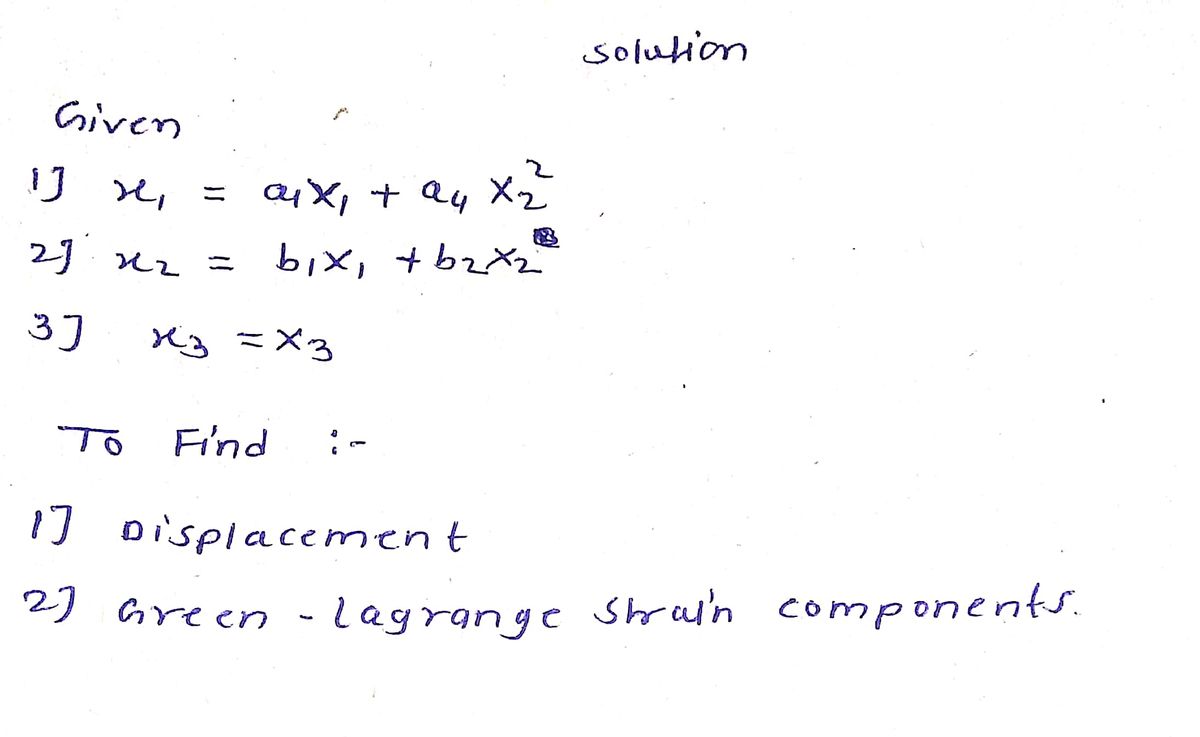 solution
Given
1] x₁ = a₁X₁ + a₄ X₂²
2] x₂ = b₁X₁ + b₂X₂
3] x₃ = X₃
To Find :-
1] Displacement
2] Green - lagrange strain components.